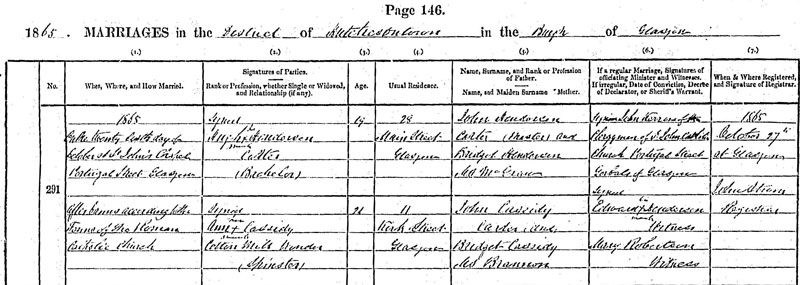 Page 146.
1865. MARRIAGES in the District of Hutchesontown in the Burgh of Glasgow
(1.) (2.) (3.) (4.) (5.) (6.) (7.)
No. When, Where, and How Married. Signatures of Parties. Rank or Profession, whether Single or Widowed, and Relationship (if any). Age. Usual Residence. Name, Surname, and Rank or Profession of Father. Name, and Maiden Surname Mother. If a regular Marriage, Signatures of officiating Minister and Witnesses. If irregular, Date of Conviction, Decree of Declarator, or Sheriff's Warrant. When & Where Registered, and Signature of Registrar.
1865 Signed 19 28 John Henderson Signed John 1865
On the twenty day of Henderson Main Street Carter and Clergyman of St John October 27th
October at St John's Chapel Carter Glasgow Bridget Henderson Church Portugal Street at Glasgow
Portugal Street Glasgow (Bachelor) Ms Gorbals of Glasgow
291
Signed John
After banns according to the Signed 21 11 John Cassidy Edward Henderson Registrar
Forms of the Roman Ann x Cassidy Street Carter and Witness
Catholic Church Cotton Mill Winder Glasgow Bridget Cassidy Mary Robertson
(Spinster) Ms Brannon Witness